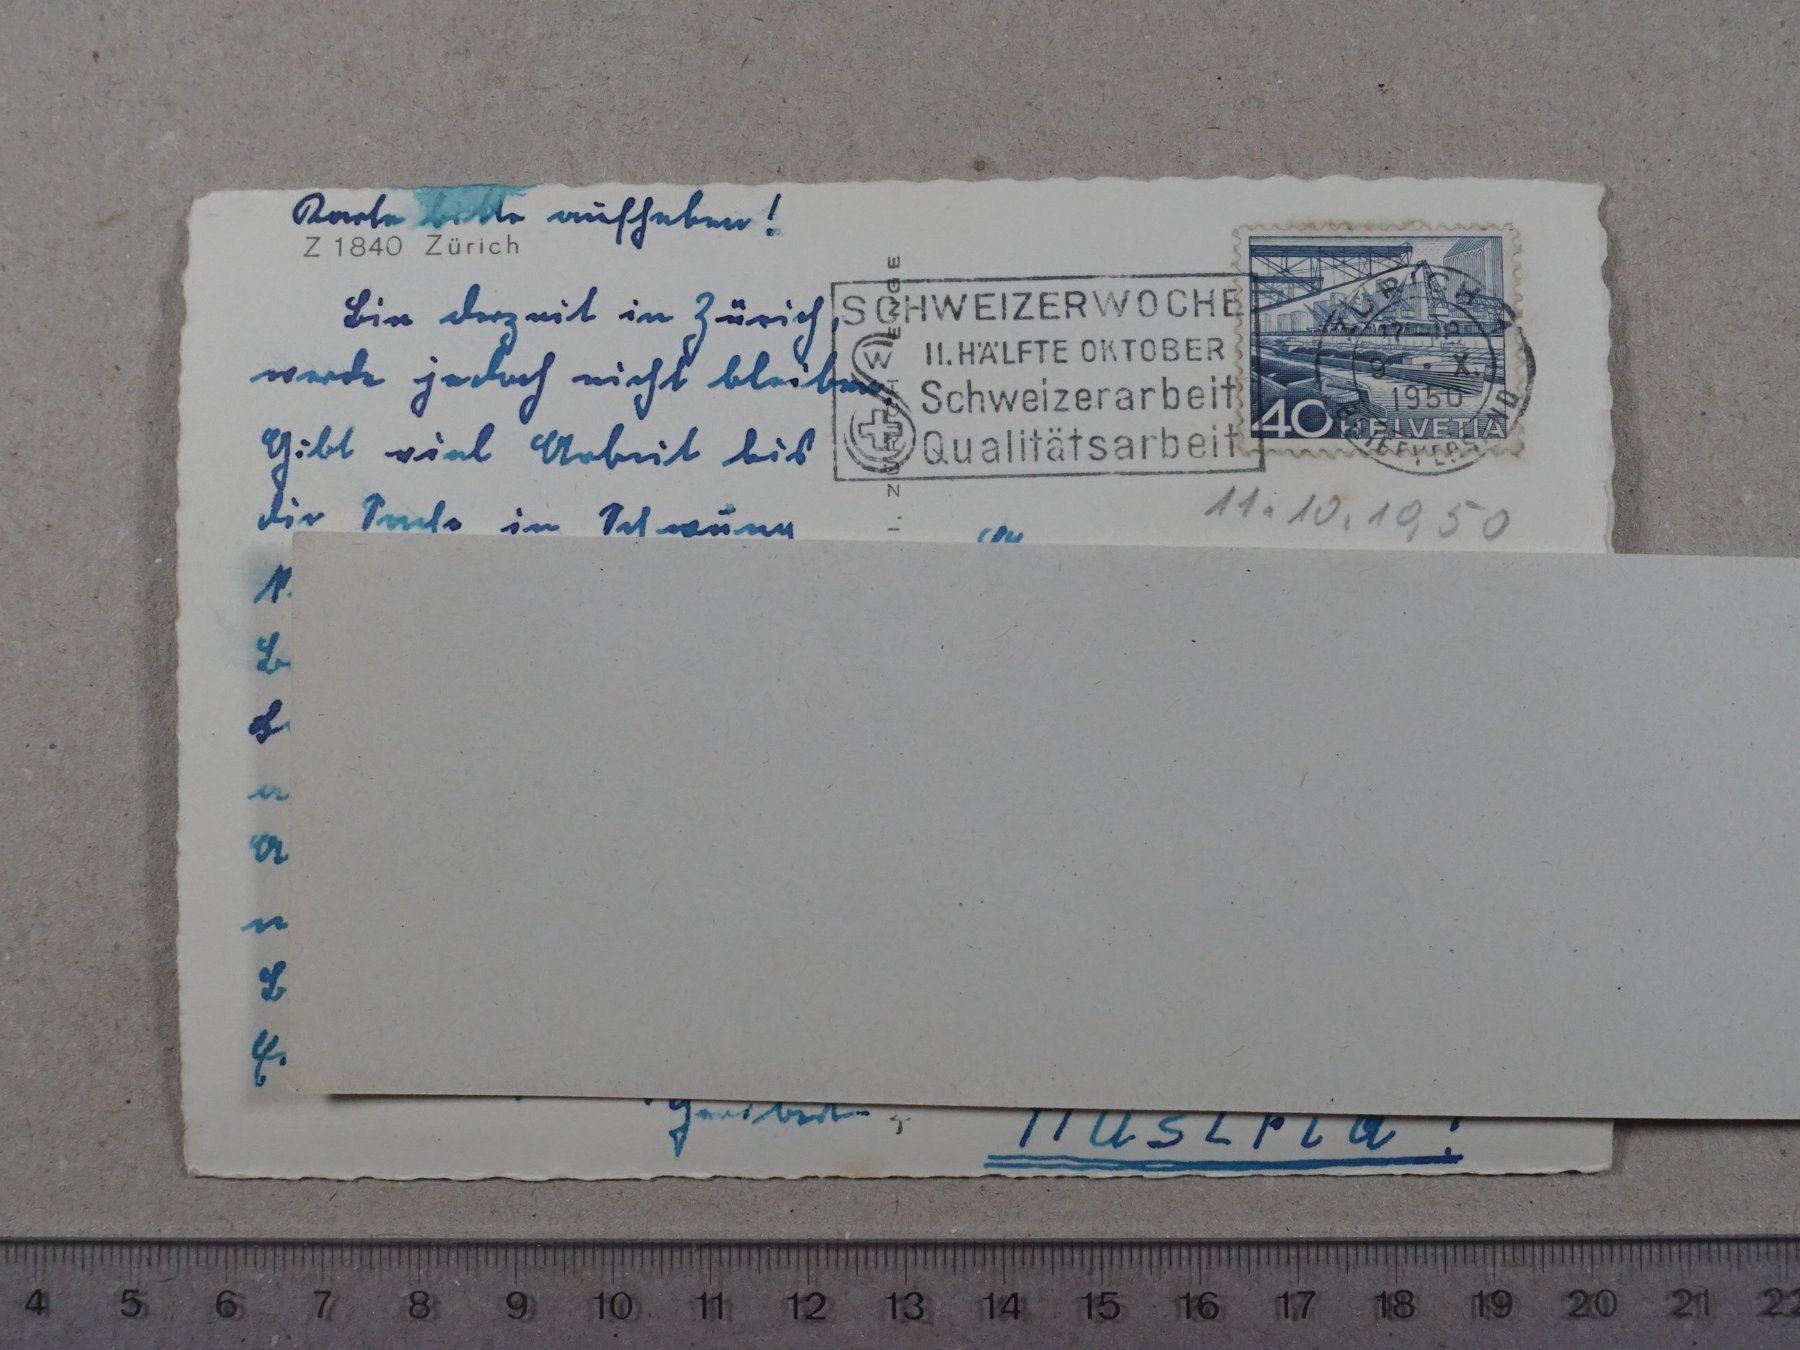 Karte bitte aufheben!
Z 1840 Zürich
Bin derzeit in Zürich,
werde jedoch nicht bleiben.
Gibt viel Arbeit bis
die Sache in Schwung
Austria!
ZÜRICH WENGE
SCHWEIZERWOCHE
II. HÄLFTE OKTOBER
Schweizerarbeit
Qualitätsarbeit
W
ZÜRICH
17-18
9. X.
1950
BRIEFVERSAND
40 HELVETIA
11.10.1950
4 5 6 7 8 9 10 11 12 13 14 15 16 17 18 19 20 21 22